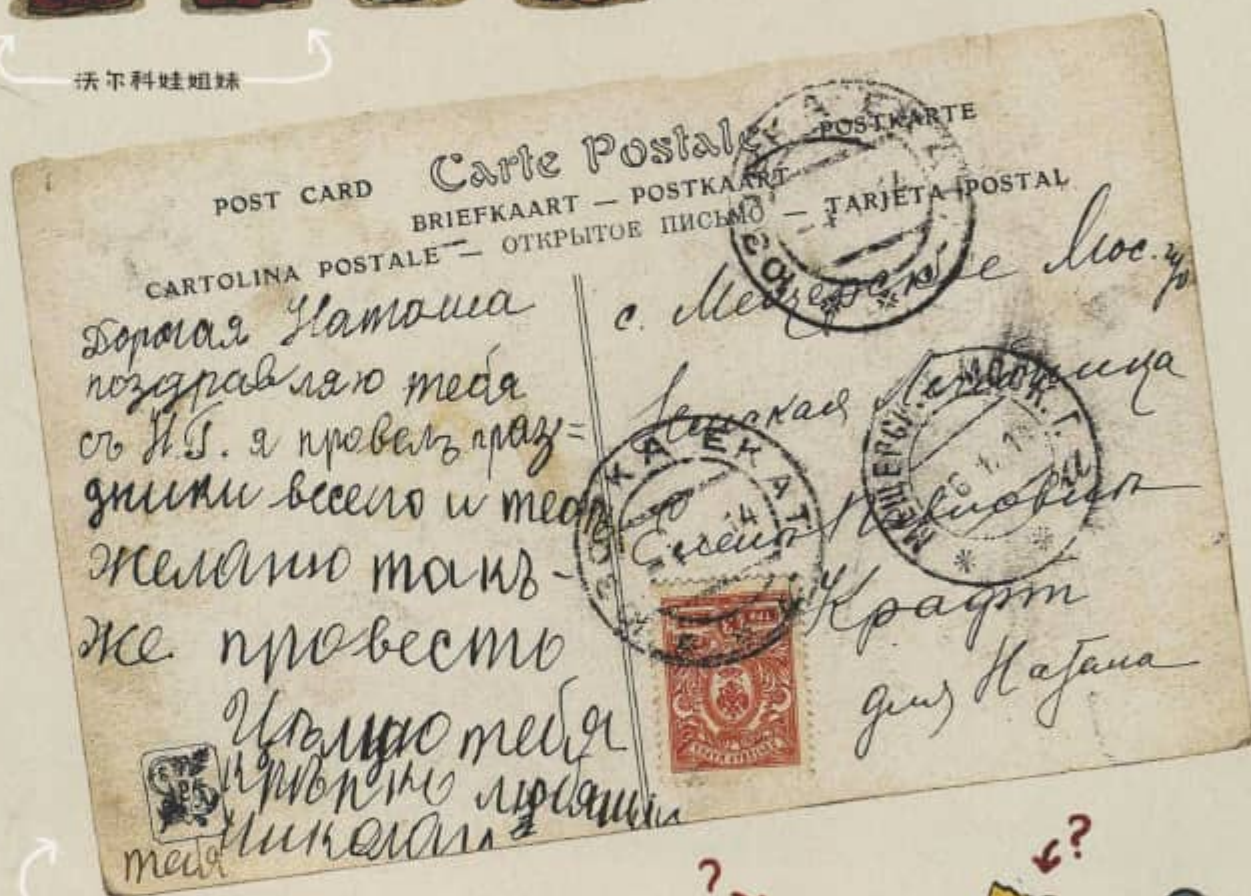 沃尔科娃姐妹
Carte Postale POSTKARTE
POST CARD
BRIEFKAART — POSTKAART
CARTOLINA POSTALE — ОТКРЫТОЕ ПИСЬМО — TARJETA POSTAL
Дорогая Наташа
поздравляю тебя
съ Н.Г. я провелъ праз=
дники весело и тебѣ
желаю такъ-
же провесть
Цѣлую тебя
крѣпко любящій
тебя Николай
с. Мещерское Мос. гу
Земская Лечебница
Еленѣ Ивановнѣ
Крафт
для Наташа
ЮЗОВКА ЕКАТ
ЮЗОВКА ЕКАТ
14
МЕЩЕРСК. МОСК. Г.
?
?